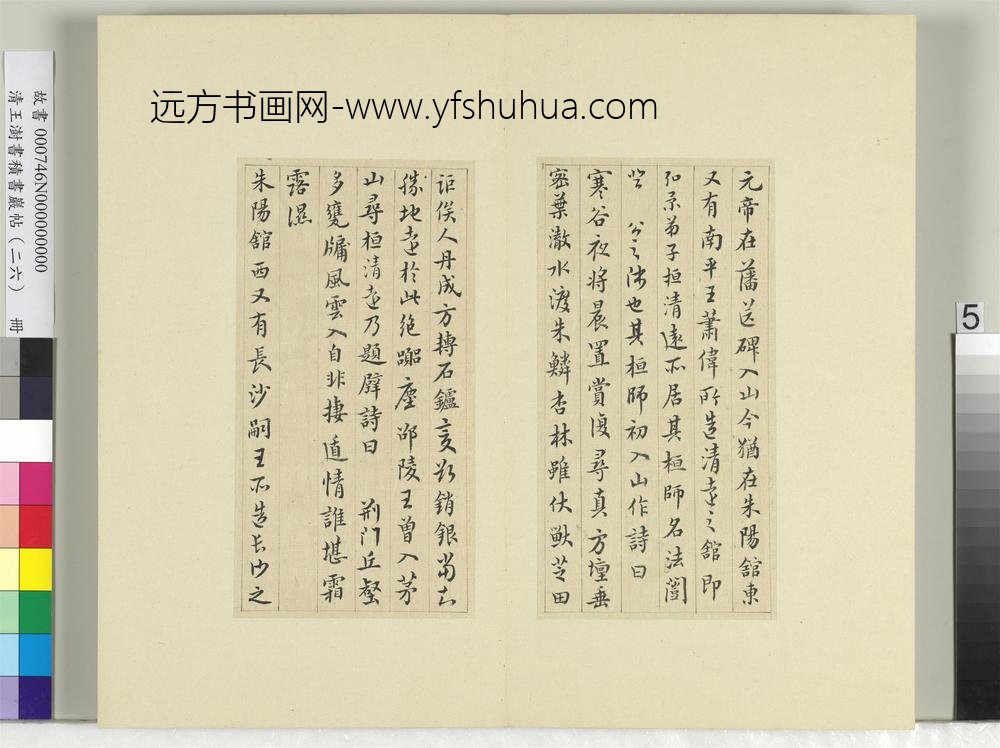 远方书画网-www.yfshuhua.com
故書 000746N000000000
清王澍書積書巖帖（二六） 冊
5
元帝在藩送碑入山今猶在朱陽舘東
又有南平王蕭偉所造清遠之舘即
弟子桓清遠所居其桓師名法闓
之師也其桓師初入山作詩曰
寒谷夜將晨置賞復尋真方壇垂
密葉澈水渡朱鱗杏林雖伏獸芝田
詎俟人丹成方轉石鑪變欲銷銀當知
勝地遠於此絶囂塵邵陵王曾入茅
山尋桓清遠乃題壁詩曰 荊門丘壑
多甕牖風雲入自非棲遁情誰堪霜
露濕
朱陽舘西又有長沙嗣王所造長沙之